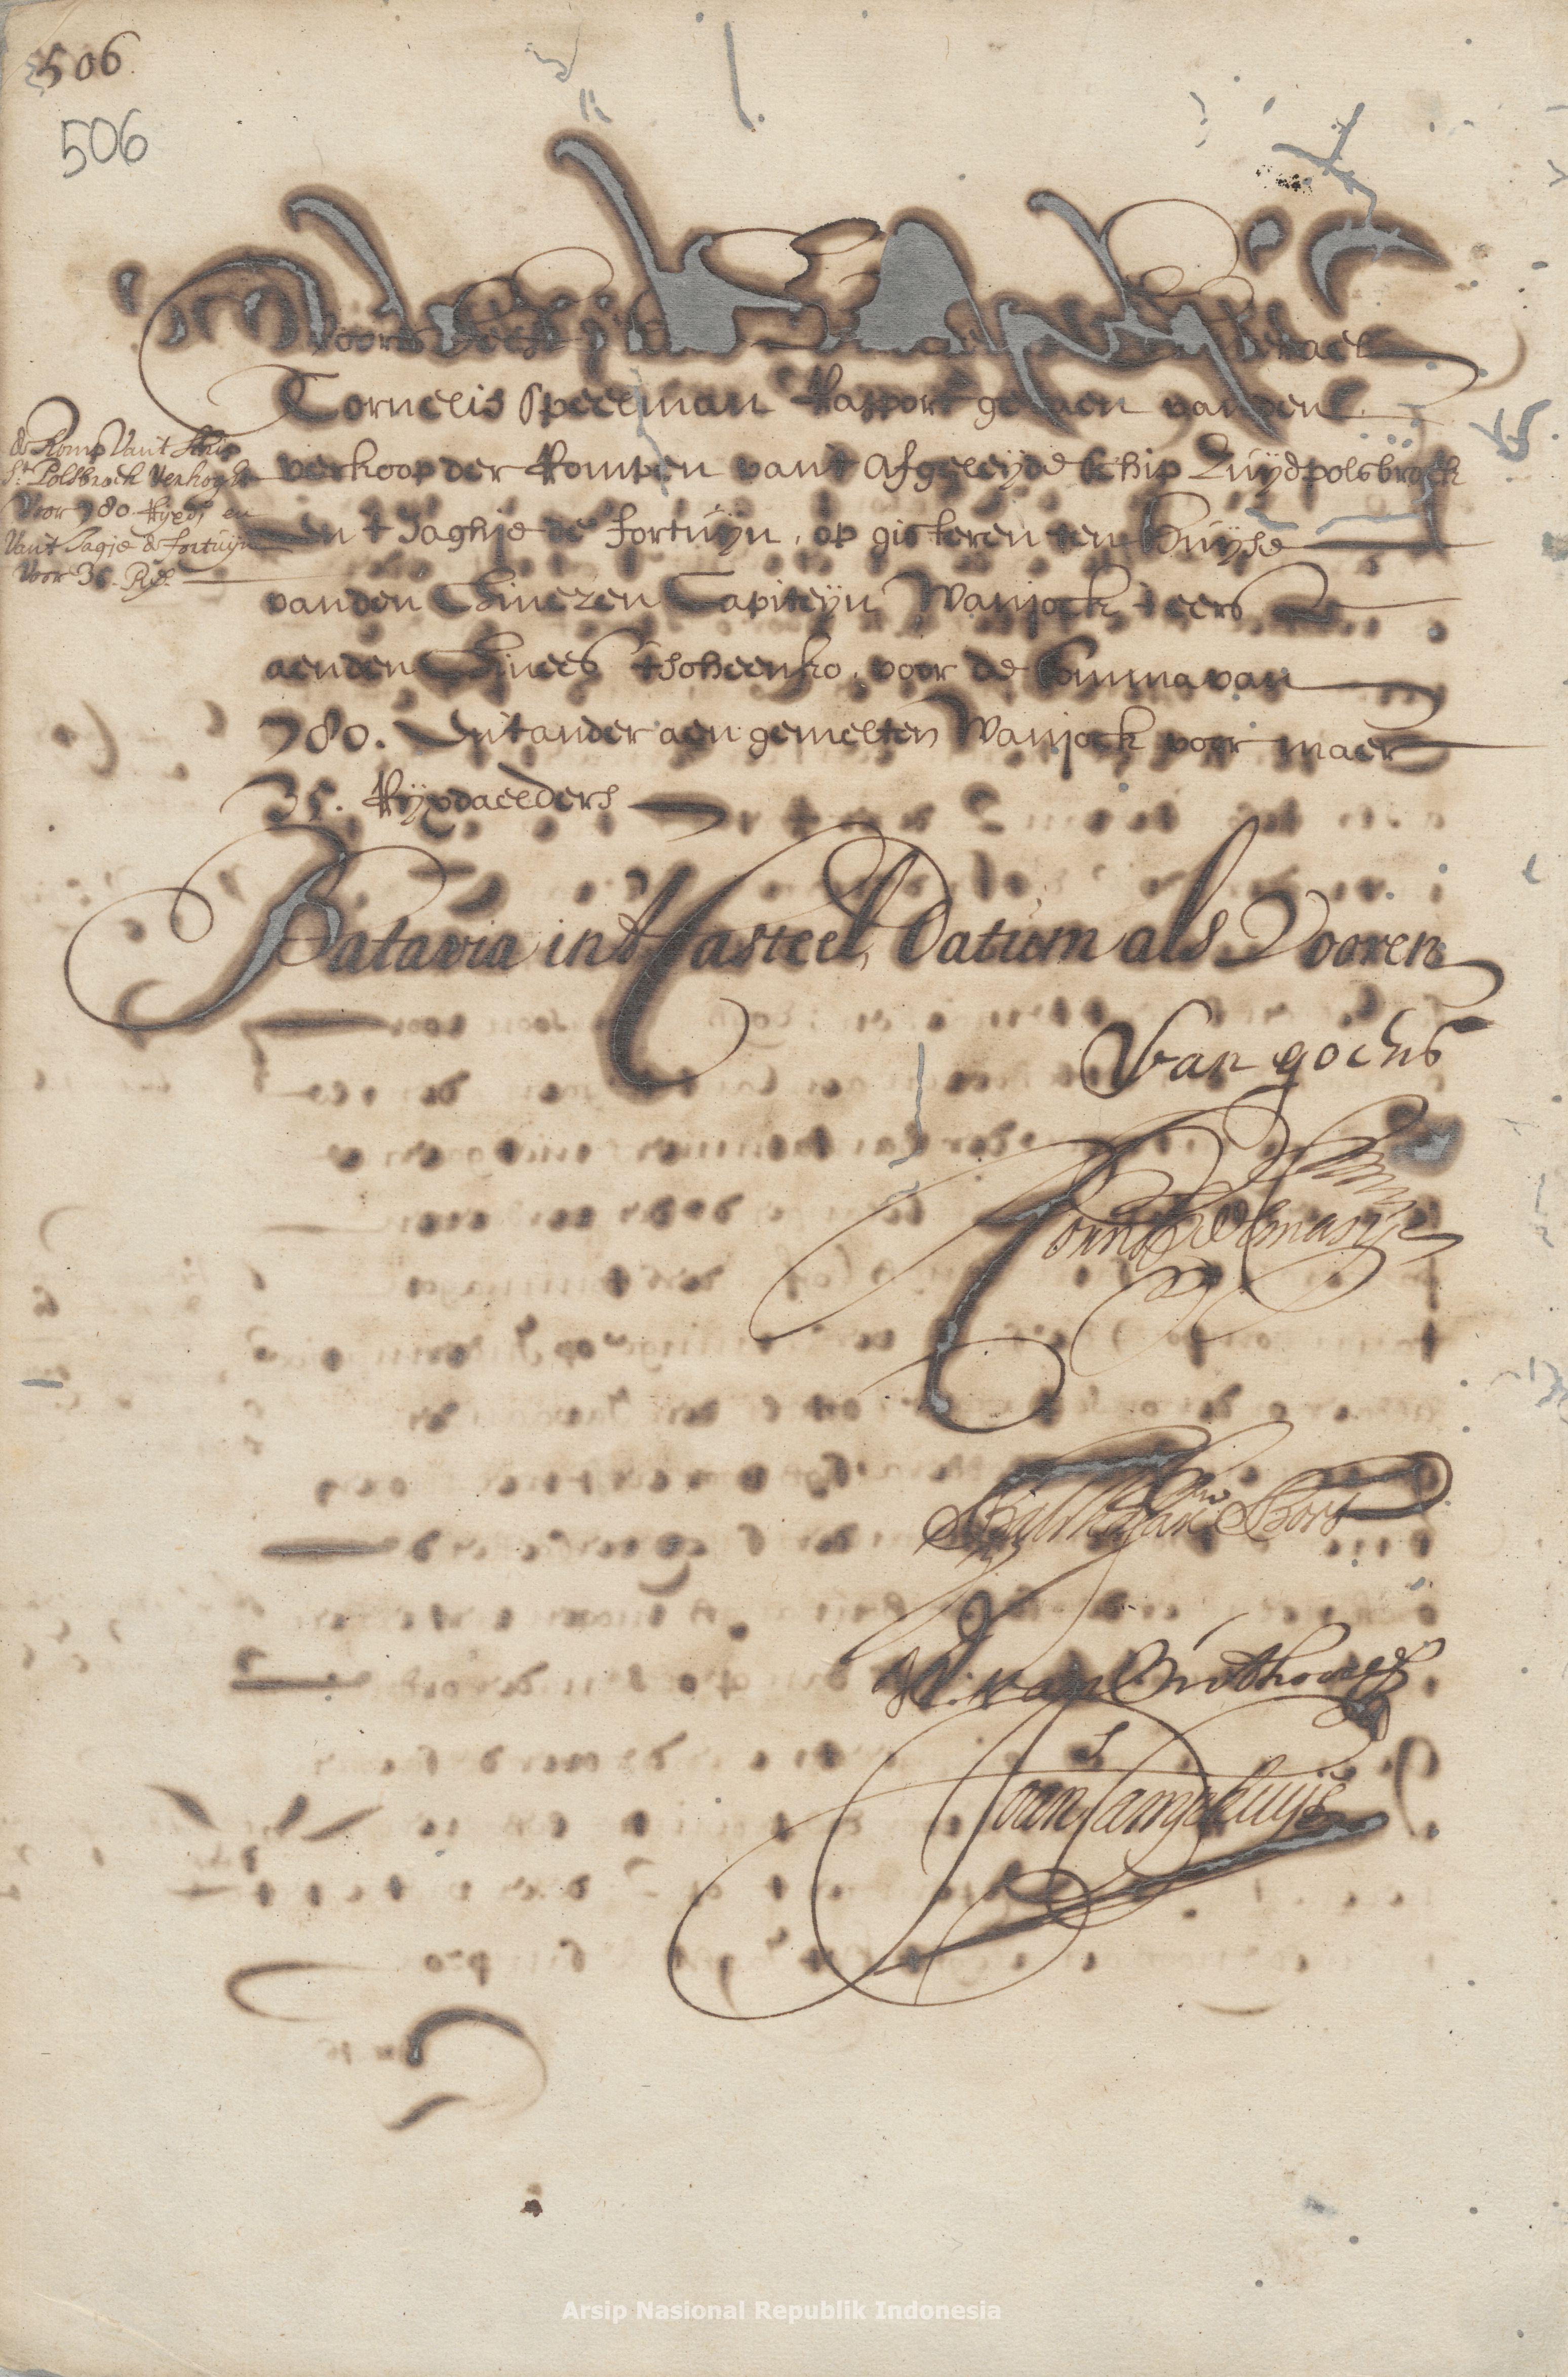 506
506
Cornelis Speelman Rapport gedaen vanden
verkoop der Rompen vant afgeleyde schip Zuydpolsbroek
en t Jaghje de fortuyn, op gisteren ten huyse
vanden Chinezen Capiteyn Wanjock teers
aenden Chinees thoheenko, voor de somma van
780. en t ander aen gemelten Wanjock voor maer
35. Ryxdaelders
de Romp Van't Schip
Zt. Polsbroek Verkogt
Voor 780 Ryxds en
Van't Jagje de fortuijn
Voor 35. Rds.
Batavia int Casteel, Datum als Vooren
Van goens
Corns Speelman
Balthazar Bort
W. van Outhoorn
Joan Camphuijs
Arsip Nasional Republik Indonesia